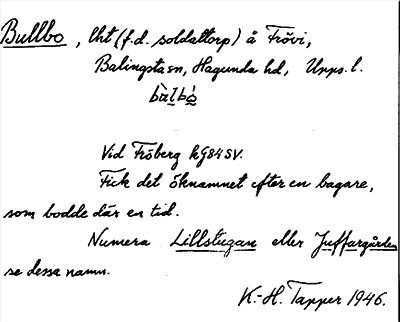 Bullbo, lht (f.d. soldattorp) å Frövi,
Balingsta sn, Hagunda hd, Upps. l.
bu̇̀lbó̱
Vid Fröberg kg 84 SV.
Fick det öknamnet efter en bagare,
som bodde där en tid.
Numera Lillstugan eller Juffargården
se dessa namn.
K.-H. Tapper 1946.